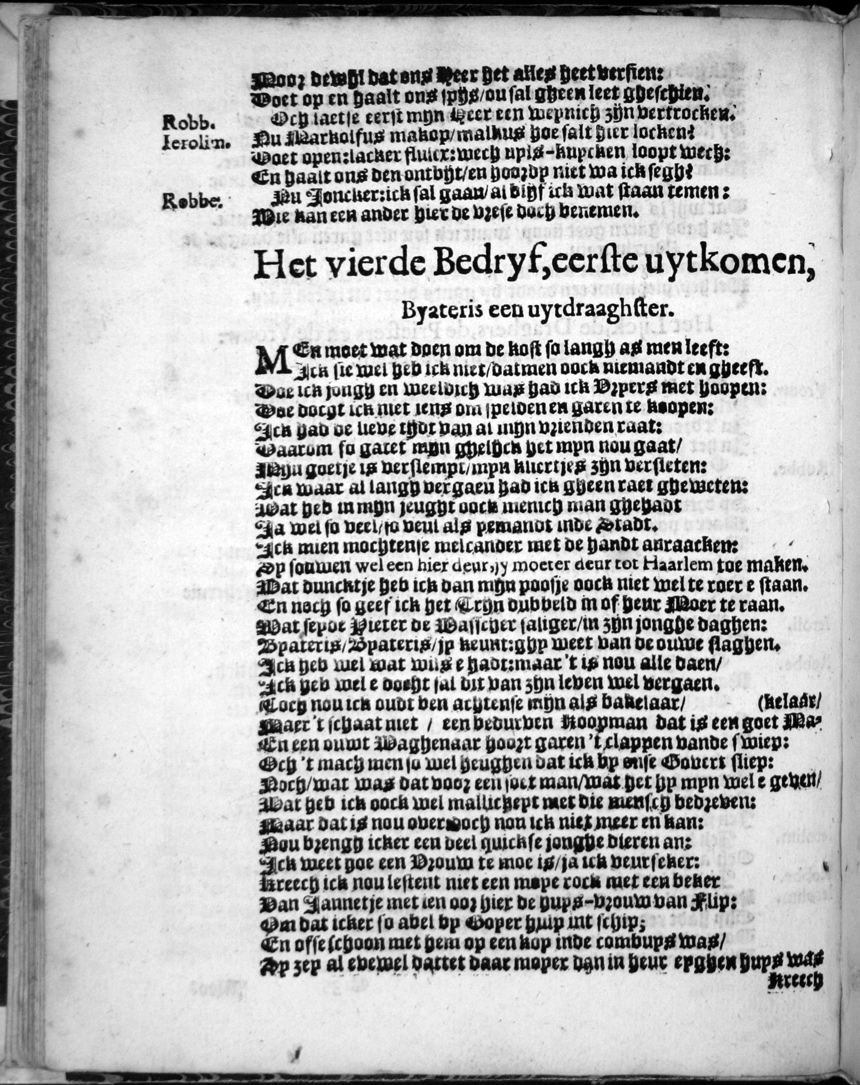 Voor dewijl dat ons Heer het alles heet versien:
Doet op en haalt ons spijs/ou sal gheen leet gheschien.
Robb. Och laetje eerst mijn Heer een weynich zijn vertrocken.
Ierolim. Nu Markolfus makop/malkus hoe salt hier locken?
Doet open:lacker fluicx:wech uyls-kuycken loopt wech:
En haalt ons den ontbijt/en hoordy niet wa ick segh?
Robbe. Nu Joncker:ick sal gaan/al blijf ick wat staan temen:
Wie kan een ander hier de vrese doch benemen.
Het vierde Bedryf,eerste uytkomen,
Byateris een uytdraaghster.
MEn moet wat doen om de kost so langh as men leeft:
Ick sie wel heb ick niet/datmen oock niemandt en gheeft.
Doe ick jongh en weeldich was had ick Vryers met hoopen:
Doe docht ick niet iens om spelden en garen te koopen:
Ick had de lieve tijdt van al mijn vrienden raat:
Daarom so garet mijn ghelijck het myn nou gaat/
Mijn goetje is verslempt/myn kliertjes zijn versleten:
Ick waar al langh vergaen had ick gheen raet gheweten:
Wat heb in mijn jeught oock menich man ghehadt
Ja wel so veel/so veul als yemandt inde Stadt.
Ick mien mochtense melcander met de handt anraacken:
Sy souwen wel een hier deur,jy moeter deur tot Haarlem toe maken.
Wat duncktje heb ick dan mijn poosje oock niet wel te roer e staan.
En noch so geef ick het Tryn dubbeld in of heur Moer te raan.
Wat seyde Pieter de Wasscher saliger/in zijn jonghe daghen:
Byateris/Byateris/jy keunt:ghy weet van de ouwe slaghen.
Ick heb wel wat wils e hadt:maar 't is nou alle daen/
Ick heb wel e docht sal dit van zijn leven wel vergaen.
Toch nou ick oudt ben achtense mijn als bakelaar/ (kelaar/
Maer 't schaat niet / een bedurven Koopman dat is een goet Ma-
En een ouwt Waghenaar hoort garen 't clappen vande swiep:
Och 't mach men so wel heughen dat ick by onse Govert sliep:
Noch/wat was dat voor een soet man/wat het hy myn wel e geven/
Wat heb ick oock wel mallicheyt met die mensch bedreven:
Maar dat is nou over:doch nou ick niet meer en kan:
Nou brengh icker een deel quickse jonghe dieren an:
Ick weet hoe een Vrouw te moe is/ja ick veurseker:
Kreech ick nou lestent niet een moye rock met een beker
Van Jannetje met ien oor hier de huys-vrouw van Flip:
Om dat icker so abel by Goper hulp int schip;
En offe schoon met hem op een kop inde combuys was/
Sy zey al evewel dattet daar moyer dan in heur eyghen huys was
Kreech